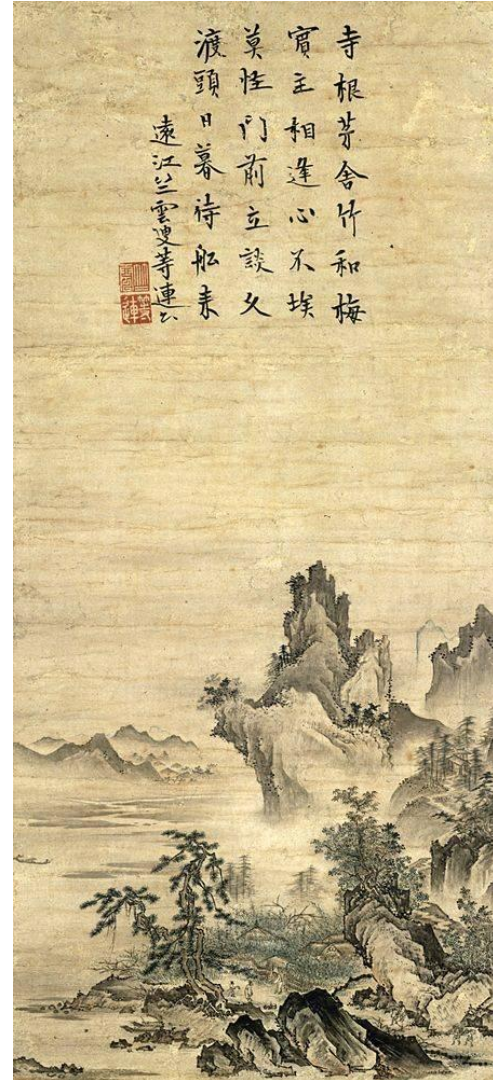 寺根茅舍竹和梅
賓主相逢心不埃
莫怪門前立談久
渡頭日暮待舩来
遠江竺雲叟等連書